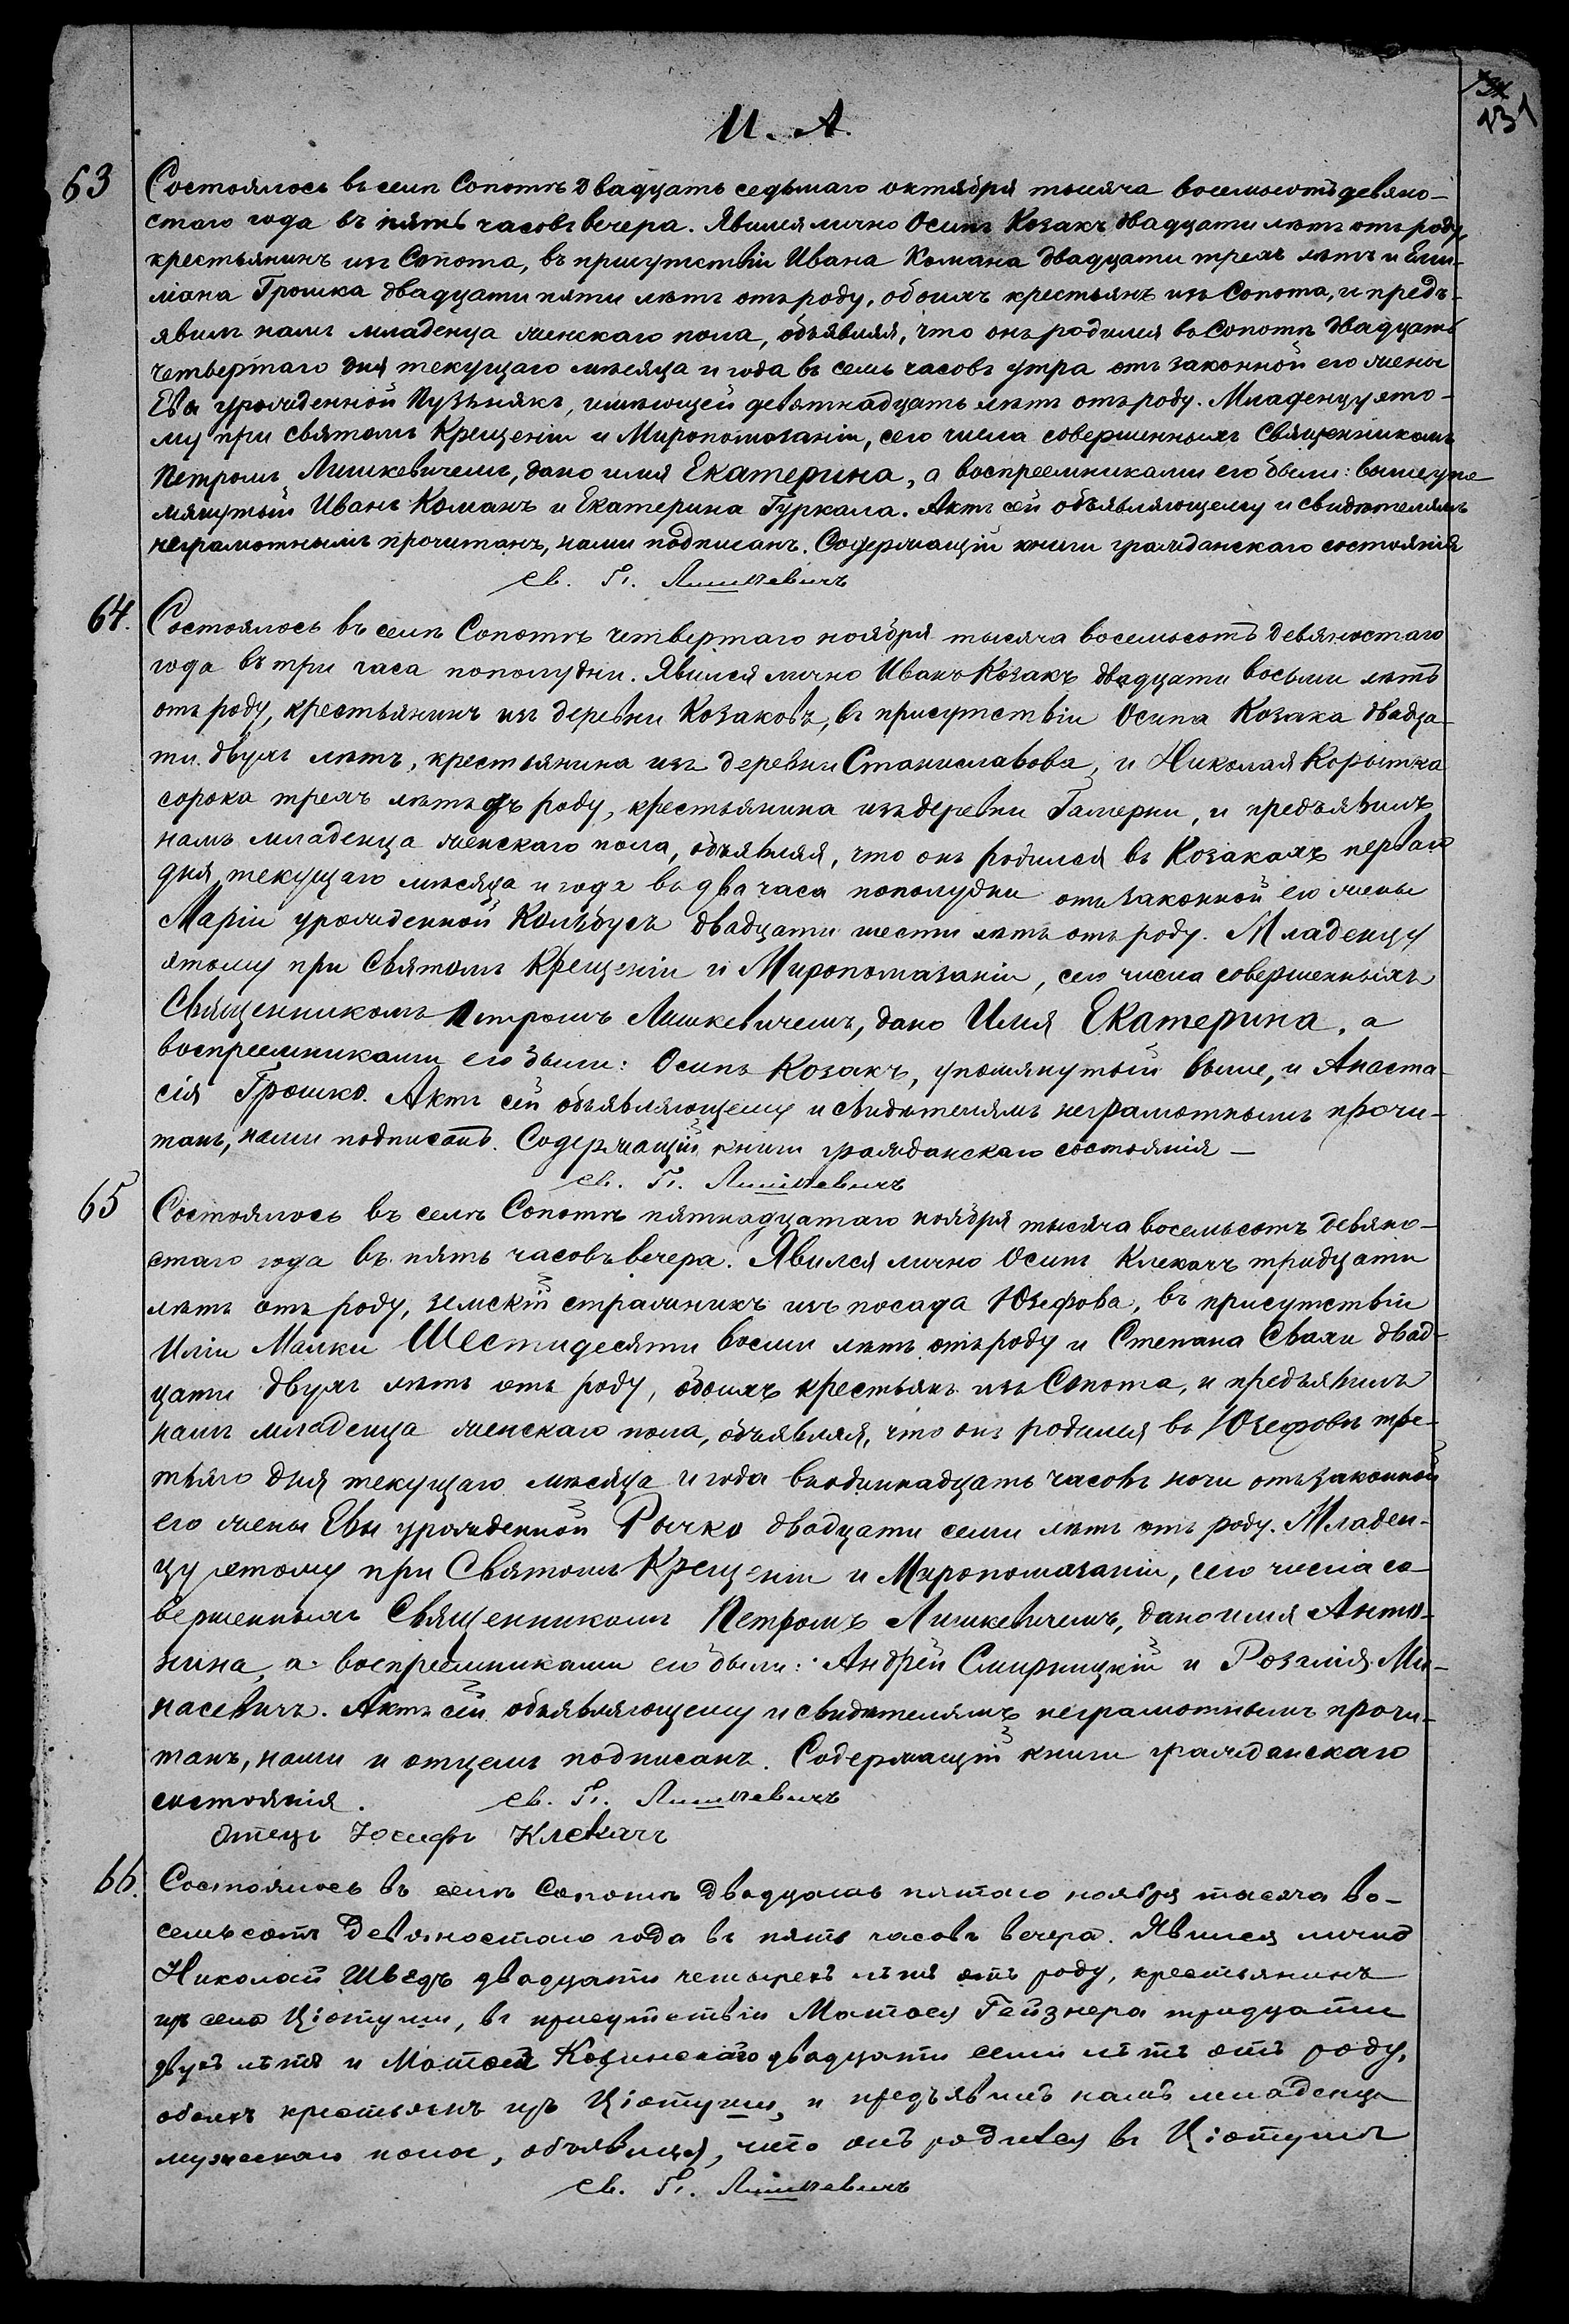 И. А.
131
63
Состоялось въ селѣ Сопотѣ двадцать седьмаго октября тысяча восемьсотъ девяно-
стаго года въ пять часовъ вечера. Явился лично Осипъ Козакъ двадцати лѣтъ отъ роду,
крестьянинъ изъ Сопота, въ присутствіи Ивана Комана двадцати трехъ лѣтъ и Еми-
ліана Грошка двадцати пяти лѣтъ отъ роду, обоихъ крестьянъ изъ Сопота, и предъ-
явилъ намъ младенца женскаго пола, объявляя, что онъ родился въ Сопотѣ двадцать
четвертаго дня текущаго мѣсяца и года въ семь часовъ утра отъ законной его жены
Евы урожденной Пузьнякъ, имѣющей девятнадцать лѣтъ отъ роду. Младенцу это-
му при святомъ Крещеніи и Миропомазаніи, сего числа совершенныхъ Священникомъ
Петромъ Лишкевичемъ, дано имя Екатерина, а воспреемниками его были: вышеупо-
мянутый Иванъ Команъ и Екатерина Гуркала. Актъ сей объявляющему и свидѣтелямъ
неграмотнымъ прочитанъ, нами подписанъ. Содержащій книги гражданскаго состоянія
Св. П. Лишкевичъ
64.
Состоялось въ селѣ Сопотѣ четвертаго ноября тысяча восемьсотъ девяностаго
года въ три часа пополудни. Явился лично Иванъ Козакъ двадцати восьми лѣтъ
отъ роду, крестьянинъ изъ деревни Козаковъ, въ присутствіи Осипа Козака двадца-
ти двухъ лѣтъ, крестьянина изъ деревни Станиславова, и Николая Корытка
сорока трехъ лѣтъ отъ роду, крестьянина изъ деревни Гамерни, и предъявилъ
намъ младенца женскаго пола, объявляя, что онъ родился въ Козакахъ перваго
дня текущаго мѣсяца и года въ два часа пополудни отъ законной его жены
Маріи урожденной Кольбусъ двадцати шести лѣтъ отъ роду. Младенцу
этому при Святомъ Крещеніи и Миропомазаніи, сего числа совершенныхъ
Священникомъ Петромъ Лишкевичемъ, дано Имя Екатерина, а
воспреемниками его были: Осипъ Козакъ, упомянутый выше, и Анаста-
сія Грошко. Актъ сей объявляющему и свидѣтелямъ неграмотнымъ прочи-
танъ, нами подписанъ. Содержащій книги гражданскаго состоянія —
Св. П. Лишкевичъ
65
Состоялось въ селѣ Сопотѣ пятнадцатаго ноября тысяча восемьсотъ девяно-
стаго года въ пять часовъ вечера. Явился лично Осипъ Клекачъ тридцати
лѣтъ отъ роду, земскій стражникъ изъ посада Юзефова, въ присутствіи
Иліи Малки Шестидесяти восми лѣтъ отъ роду и Степана Свахи двад-
цати двухъ лѣтъ отъ роду, обоихъ крестьянъ изъ Сопота, и предъявилъ
намъ младенца женскаго пола, объявляя, что онъ родился въ Юзефовѣ тре-
тьяго дня текущаго мѣсяца и года въ одиннадцать часовъ ночи отъ законной
его жены Евы урожденной Рычко двадцати семи лѣтъ отъ роду. Младен-
цу этому при Святомъ Крещеніи и Миропомазаніи, сего числа со-
вершенныхъ Священникомъ Петромъ Лишкевичемъ, дано имя Анто-
нина, а воспреемниками его были: Андрей Смирницкій и Розалія Ми-
насевичъ. Актъ сей объявляющему и свидѣтелямъ неграмотнымъ прочи-
танъ, нами и отцемъ подписанъ. Содержащій книги гражданскаго
состоянія. Св. П. Лишкевичъ
Отецъ Іосифъ Клекачъ
66.
Состоялось въ селѣ Сопотѣ двадцать пятаго ноября тысяча во-
семьсотъ девяностаго года въ пять часовъ вечера. Явился лично
Николай Шведъ двадцати четырехъ лѣтъ отъ роду, крестьянинъ
изъ села Ціотуши, въ присутствіи Матѳея Гейзнера тридцати
двухъ лѣтъ и Матѳея Козинскаго двадцати семи лѣтъ отъ роду,
обоихъ крестьянъ изъ Ціотуши, и предъявилъ намъ младенца
мужескаго пола, объявляя, что онъ родился въ Ціотушѣ
Св. П. Лишкевичъ